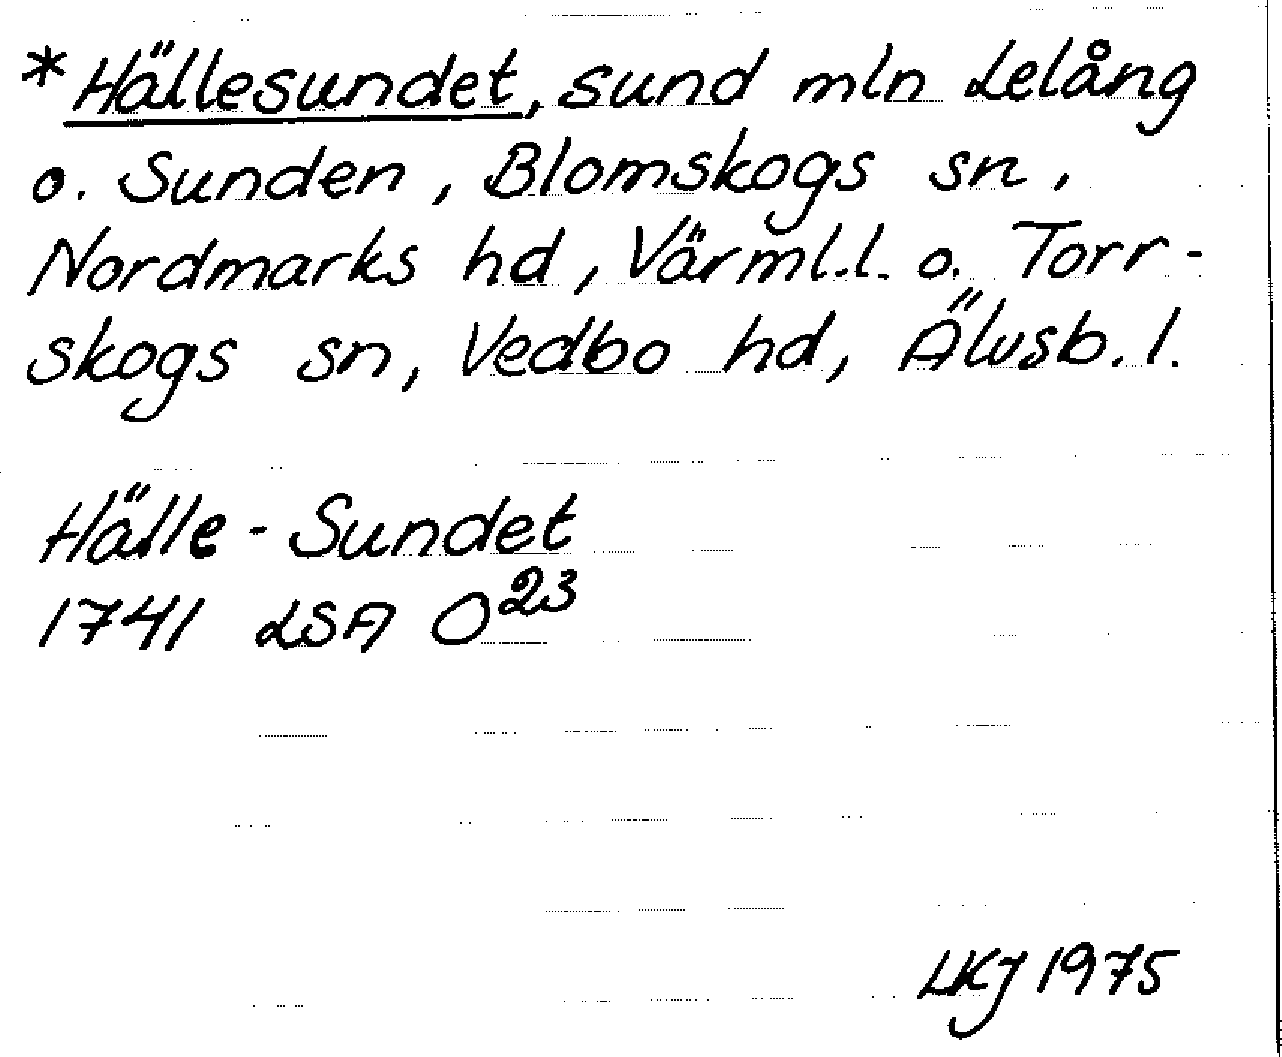 *Hällesundet, sund mln Lelång
o. Sunden, Blomskogs sn,
Nordmarks hd, Värml.l. o. Torr-
skogs sn, Vedbo hd, Älvsb.l.
Hälle-Sundet
1741 LSA O23
LKJ 1975